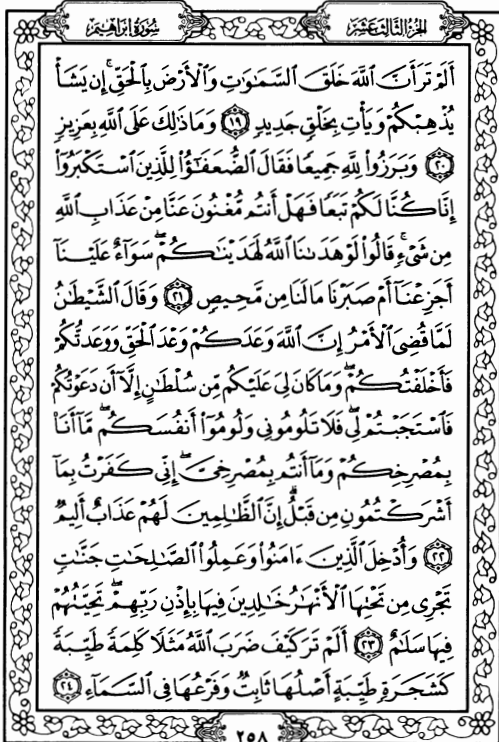 سُورَةُ إِبْرَاهِيم
الجُزْءُ الثَّالِثَ عَشَرَ
أَلَمْ تَرَ أَنَّ اللَّهَ خَلَقَ السَّمَاوَاتِ وَالْأَرْضَ بِالْحَقِّ ۚ إِن يَشَأْ
يُذْهِبْكُمْ وَيَأْتِ بِخَلْقٍ جَدِيدٍ ۝١٩ وَمَا ذَٰلِكَ عَلَى اللَّهِ بِعَزِيزٍ
۝٢٠ وَبَرَزُوا لِلَّهِ جَمِيعًا فَقَالَ الضُّعَفَٰٓؤُا لِلَّذِينَ اسْتَكْبَرُوٓا
إِنَّا كُنَّا لَكُمْ تَبَعًا فَهَلْ أَنتُم مُّغْنُونَ عَنَّا مِنْ عَذَابِ اللَّهِ
مِن شَيْءٍ ۚ قَالُوا لَوْ هَدَىٰنَا اللَّهُ لَهَدَيْنَٰكُمْ ۖ سَوَآءٌ عَلَيْنَآ
أَجَزِعْنَآ أَمْ صَبَرْنَا مَا لَنَا مِن مَّحِيصٍ ۝٢١ وَقَالَ الشَّيْطَٰنُ
لَمَّا قُضِيَ الْأَمْرُ إِنَّ اللَّهَ وَعَدَكُمْ وَعْدَ الْحَقِّ وَوَعَدتُّكُمْ
فَأَخْلَفْتُكُمْ ۖ وَمَا كَانَ لِيَ عَلَيْكُم مِّن سُلْطَٰنٍ إِلَّآ أَن دَعَوْتُكُمْ
فَاسْتَجَبْتُمْ لِي ۖ فَلَا تَلُومُونِي وَلُومُوٓا أَنفُسَكُم ۖ مَّآ أَنَا۠
بِمُصْرِخِكُمْ وَمَآ أَنتُم بِمُصْرِخِيَّ ۖ إِنِّي كَفَرْتُ بِمَآ
أَشْرَكْتُمُونِ مِن قَبْلُ ۗ إِنَّ الظَّٰلِمِينَ لَهُمْ عَذَابٌ أَلِيمٌ
۝٢٢ وَأُدْخِلَ الَّذِينَ ءَامَنُوا وَعَمِلُوا الصَّٰلِحَٰتِ جَنَّٰتٍ
تَجْرِي مِن تَحْتِهَا الْأَنْهَٰرُ خَٰلِدِينَ فِيهَا بِإِذْنِ رَبِّهِمْ ۖ تَحِيَّتُهُمْ
فِيهَا سَلَٰمٌ ۝٢٣ أَلَمْ تَرَ كَيْفَ ضَرَبَ اللَّهُ مَثَلًا كَلِمَةً طَيِّبَةً
كَشَجَرَةٍ طَيِّبَةٍ أَصْلُهَا ثَابِتٌ وَفَرْعُهَا فِي السَّمَآءِ ۝٢٤
٢٥٨